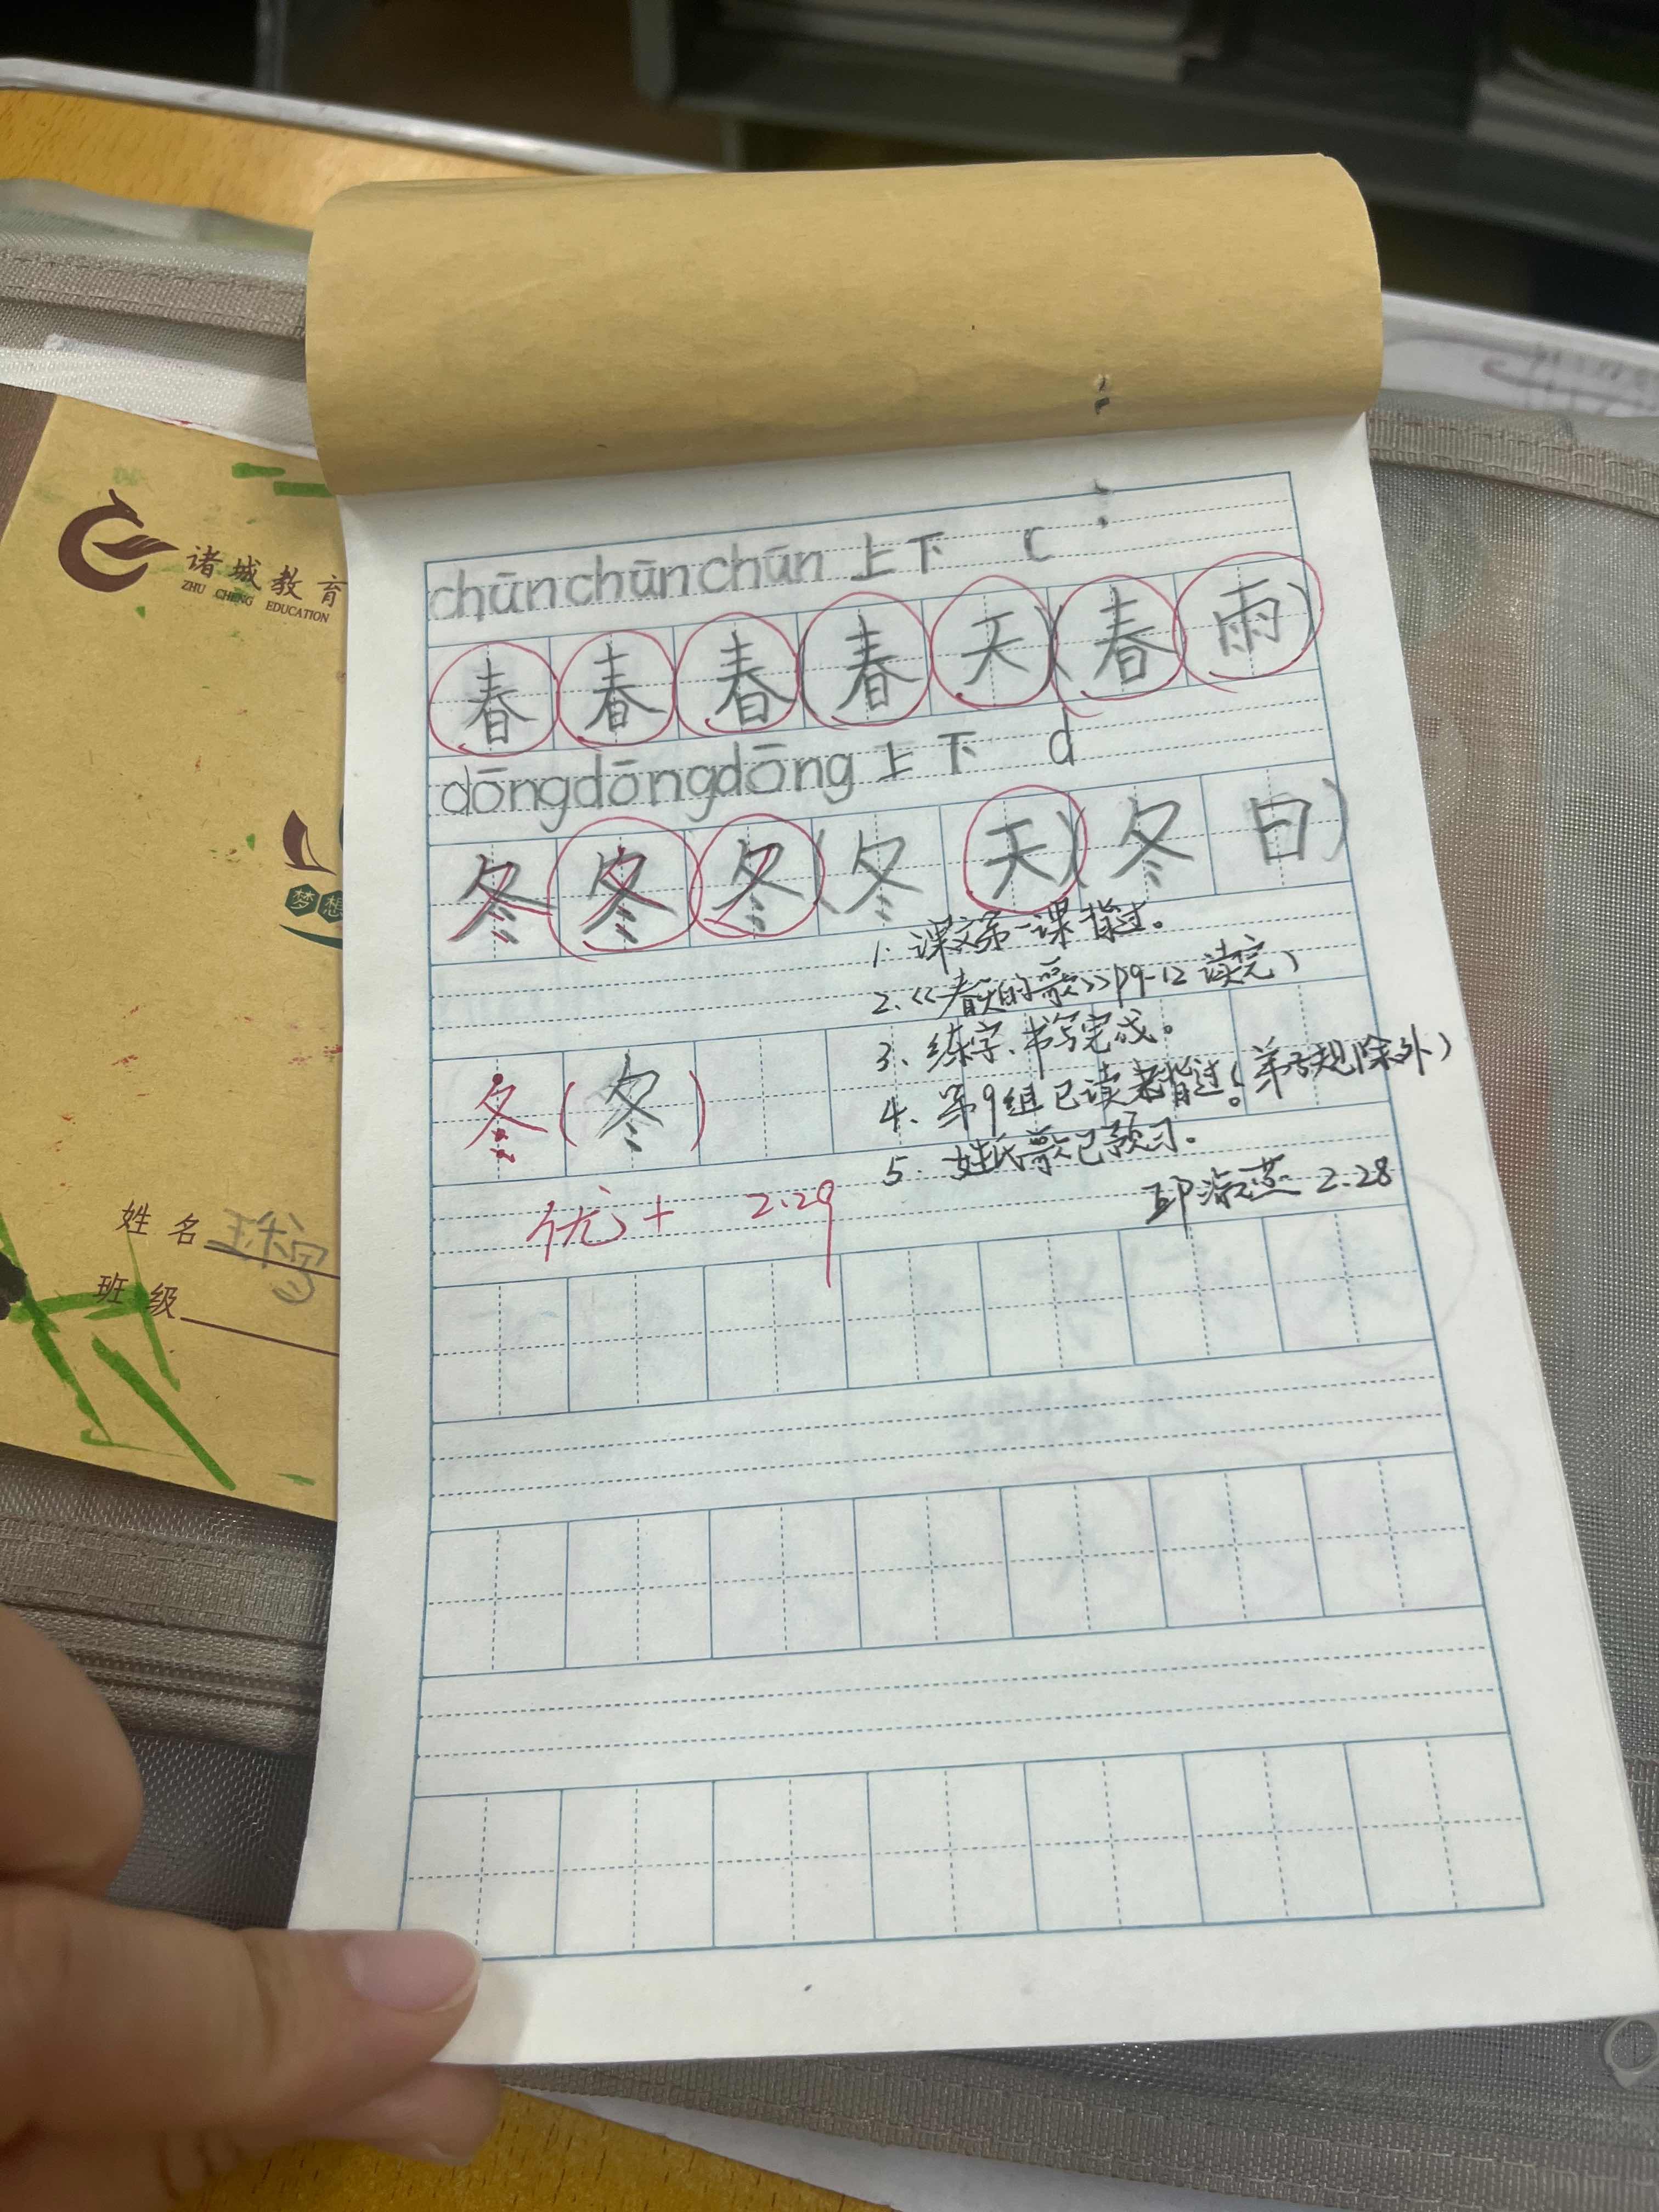 chūn chūn chūn 上下 c
春 春 春 (春 天) (春 雨)
dōng dōng dōng 上下 d
冬 冬 冬 (冬 天) (冬 日)
1. 课文第一课指过。
2.《春天的歌》P9-12 读完
3、练字、书写完成。
冬 ( 冬 )
4. 第9组已读者背过。(弟子规除外)
5. 姓氏歌已预习.
优+ 2.29
2.28
诸城教育
ZHU CHENG EDUCATION
梦想
姓名
班级